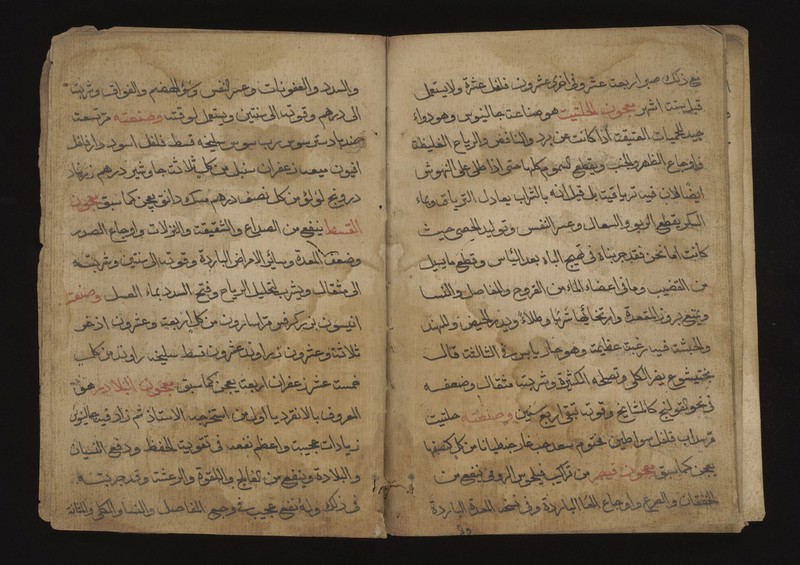 مع ذلك صبر اربعة عشر وفي اخرى عشرون فلفل عشرة ولا يستعمل
قبل ستة اشهر معجون الحلتيت هو صناعة جالينوس وهو دواء
جيد للحميات العتيقة اذا كانت من برد والنافض والرياح الغليظة
واوجاع الظهر والجنب ويقطع السموم كلها حتى اذا طلي على النهوش
ايضا لان فيه ترياقية بل قيل انه بالشراب يعادل الترياق وبماء
السكر يقطع الربو والسعال وعسر النفس وتوليد الحصى حيث
كانت اما نحن فقد جربناه في تهييج الباه بعد اليأس وقطع ما يسيل
من القضيب وما في اعضاء الماء من القروح والمفاصل والنسا
ويمنع بروز المقعدة وارتخائها شربا وطلاء ويدر الحيض وللهند
والحبشة فيه رغبة عظيمة وهو حار يابس في الثالثة قال
بختيشوع يضر الكلى وتصلحه الكثيرة وشربته مثقال وضعفه
في نحو القولنج كالمشايخ وقوته تبقى اربع سنين وصنعته حلتيت
مر سداب فلفل سوا طين مختوم سعد حب غار جنطيانا من كل كنصفها
يعجن كما سبق معجون قيصر من تراكيب فيلجوس الرومي ينفع من
الخفقان والصرع واوجاع الباردة وفي ضعف المعدة الباردة
والسدد والعفونات وعسر النفس وسوء الهضم والفواق وشربته
الى درهم وقوته الى سنتين ويستعمل لوقته وصنعته مر تسعة
جندبادستر سوس رب سوس سليخه قسط فلفل اسود دار فلفل
افيون ميعه زعفران سنبل من كل ثلاثة جاوشير درهم زرنباد
درونج لؤلؤ من كل نصف درهم مسك دانق يعجن كما سبق معجون
القسط ينفع من الصداع والشقيقة والنزلات واوجاع الصدر
وضعف المعدة وسائر الامراض الباردة وقوته الى سنتين وشربته
الى مثقال ويشرب لتحليل الرياح وفتح السدد بماء العسل وصنعته
انيسون بزر كرفس مر اسارون من كل اربعة وعشرون اذخر
ثلاثة وعشرون زراوند عشرون قسط سليخه راوند من كل
خمسة عشر زعفران اربعة يعجن كما سبق معجون البلادر هو
المعروف بالانقرديا اول من استخرجه الاستاذ ثم زاد فيه جالينوس
زيادات عجيبة واعظم نفعه في تقوية الحفظ ودفع النسيان
والبلادة وينفع من الفالج واللقوة والرعشة وقد جربته
في ذلك وله نفع عجيب في وجع المفاصل والنسا والكلى والمثانة